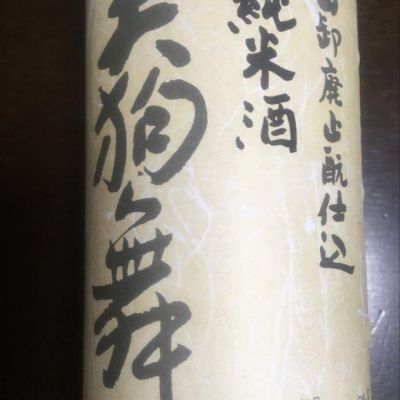 山卸廃止酛仕込
純米酒
天狗舞